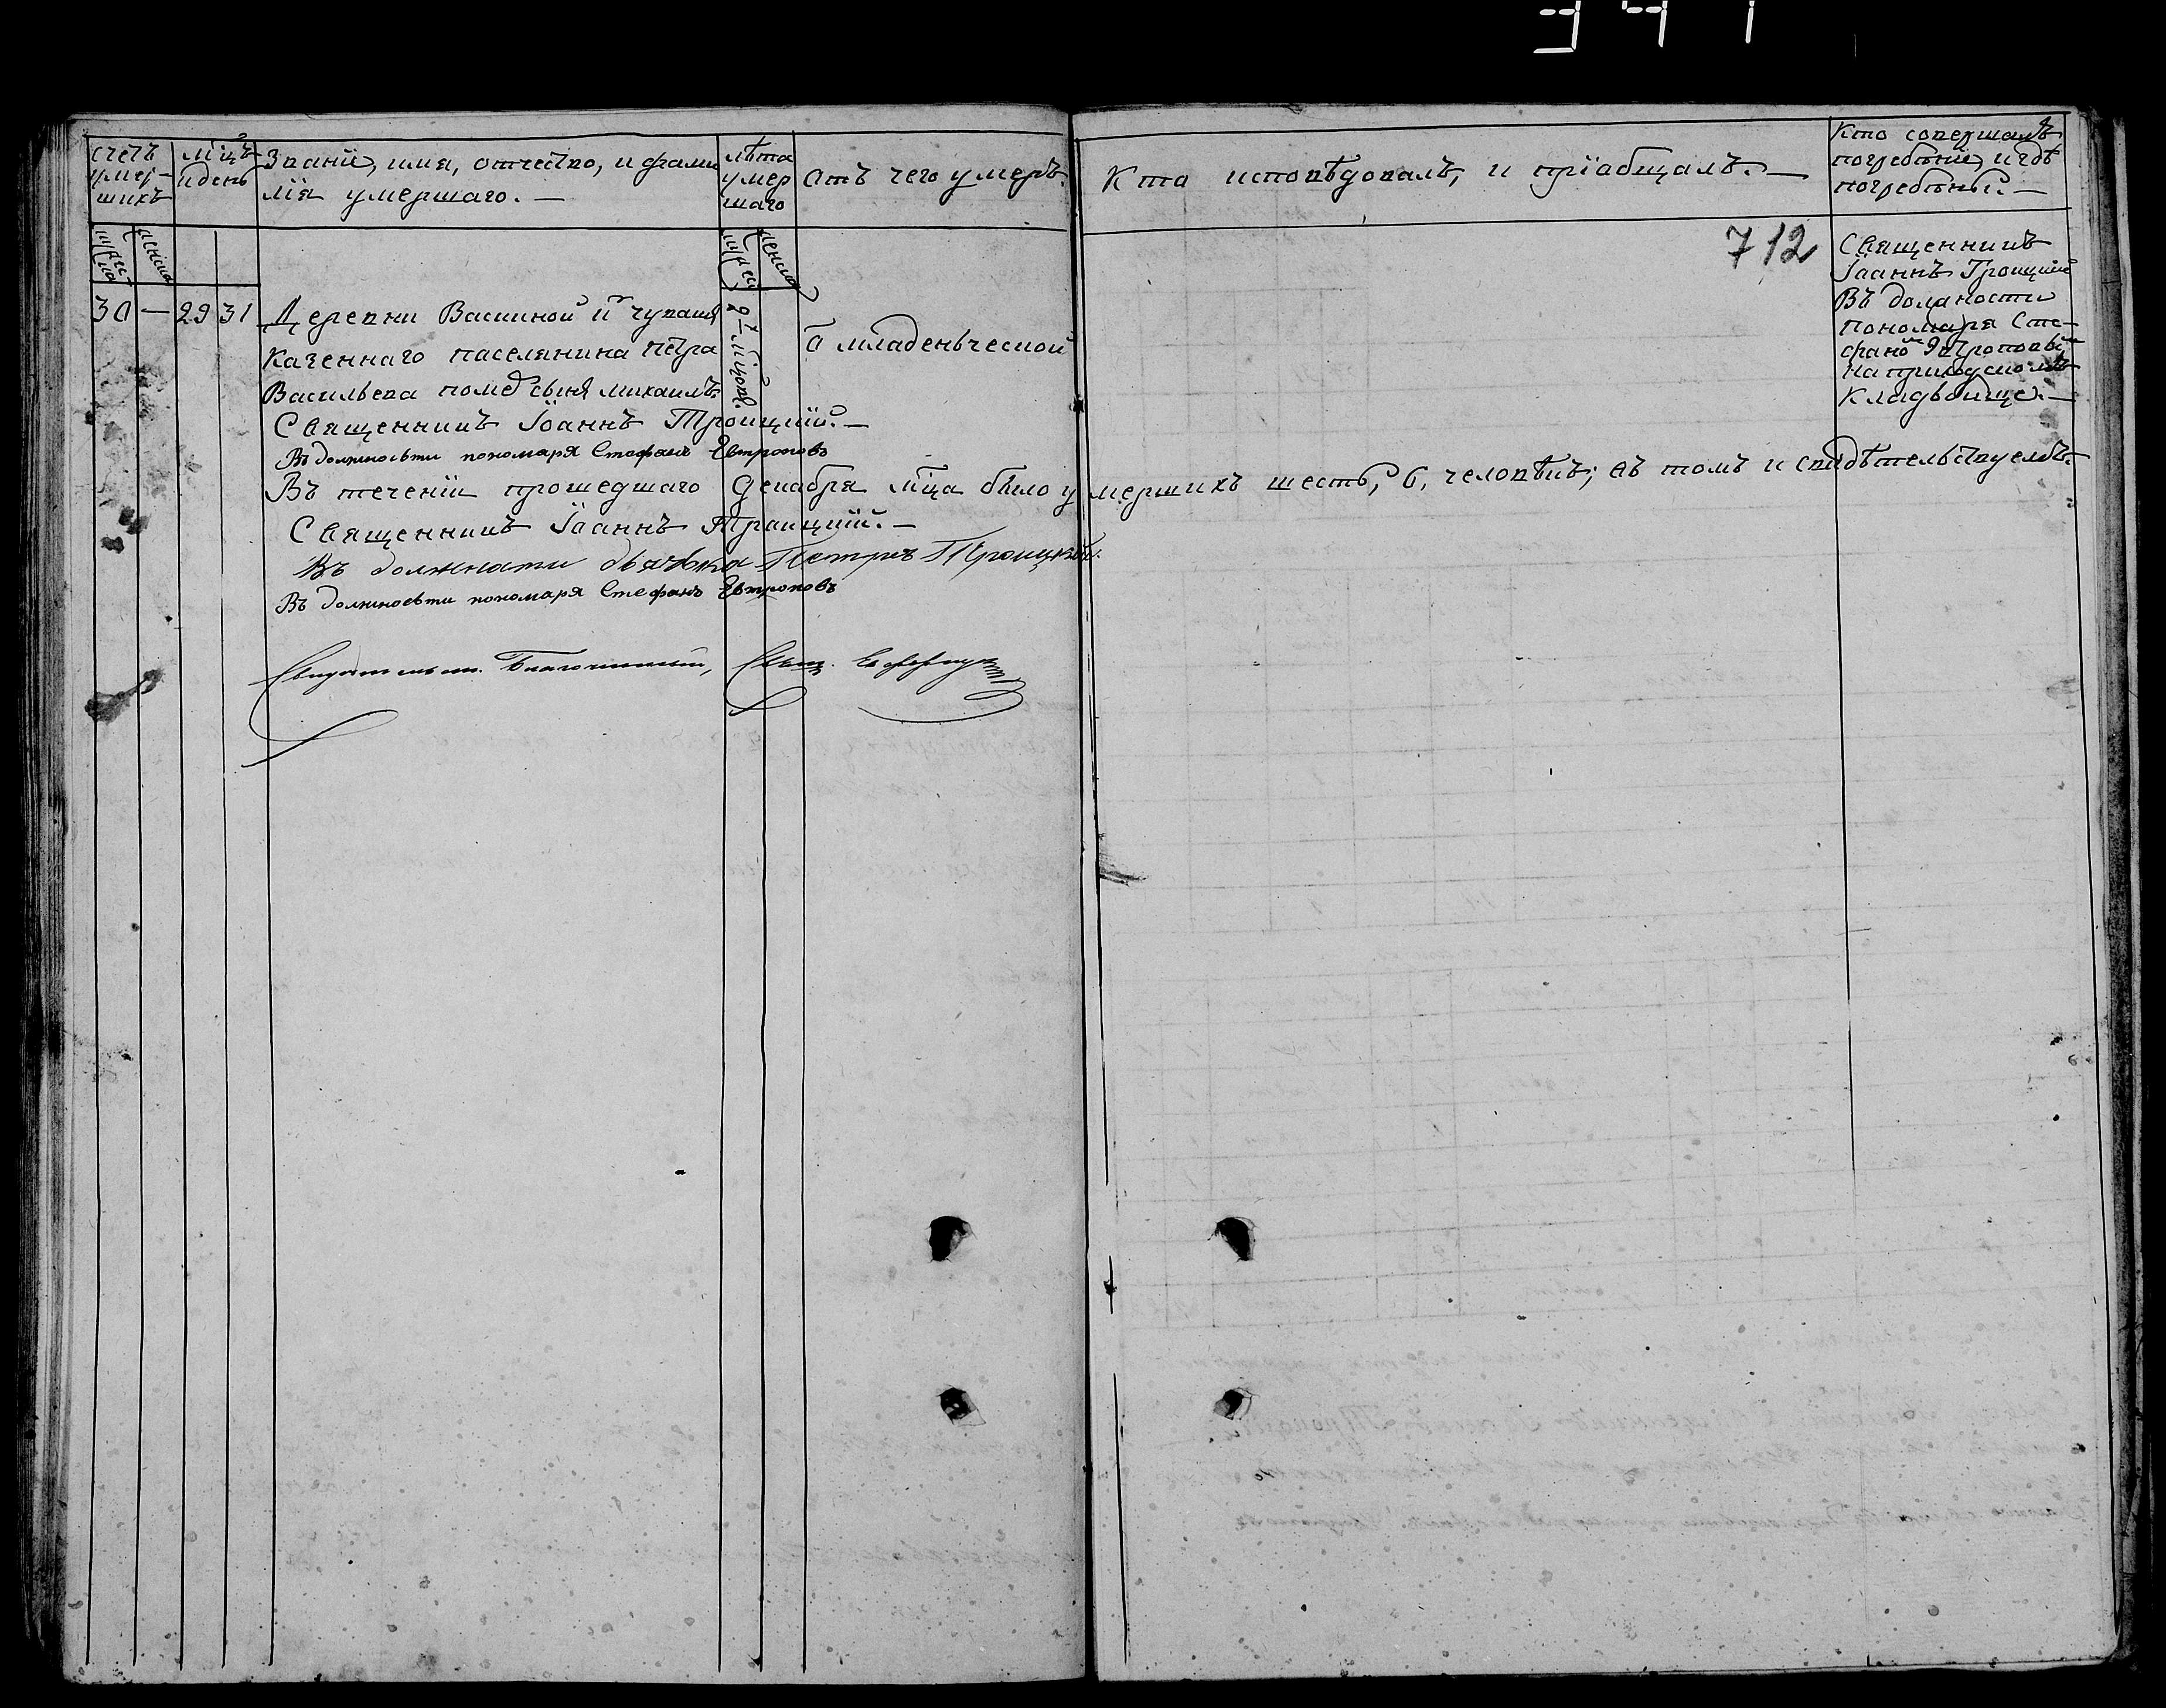 341
счетъ умер-
шихъ
мц̃ъ
и день
Званіе, имя, отчество, и фами
лія умершаго. —
лѣта
умер
шаго
Отъ чего умеръ.
Кто исповѣдовалъ, и пріобщалъ. —
Кто совершалъ
погребеніе, и гдѣ
погребены. —
712
30 — 29 31
Деревни Васькиной изъ чувашъ
казеннаго поселянина Петра
Васильева померъ сынъ Михаилъ
9 мѣсяцовъ.
Ѿ младенческой
Священникъ
Іоаннъ Троицкій
Въ должности
пономаря Сте-
фанъ Евтроповъ
на приходскомъ
кладбище. —
Священникъ Іоаннъ Троицкій. —
Въ должности пономаря Стефанъ Евтроповъ
Въ теченіи прошедшаго декабря мц̃а было умершихъ шесть, 6, человѣкъ; въ томъ и свидѣтельствуемъ. —
Священникъ Іоаннъ Троицкій. —
Въ должнати дьячька Петръ Троицкой.
Въ должности пономаря Стефанъ Евтроповъ
Благочинный,